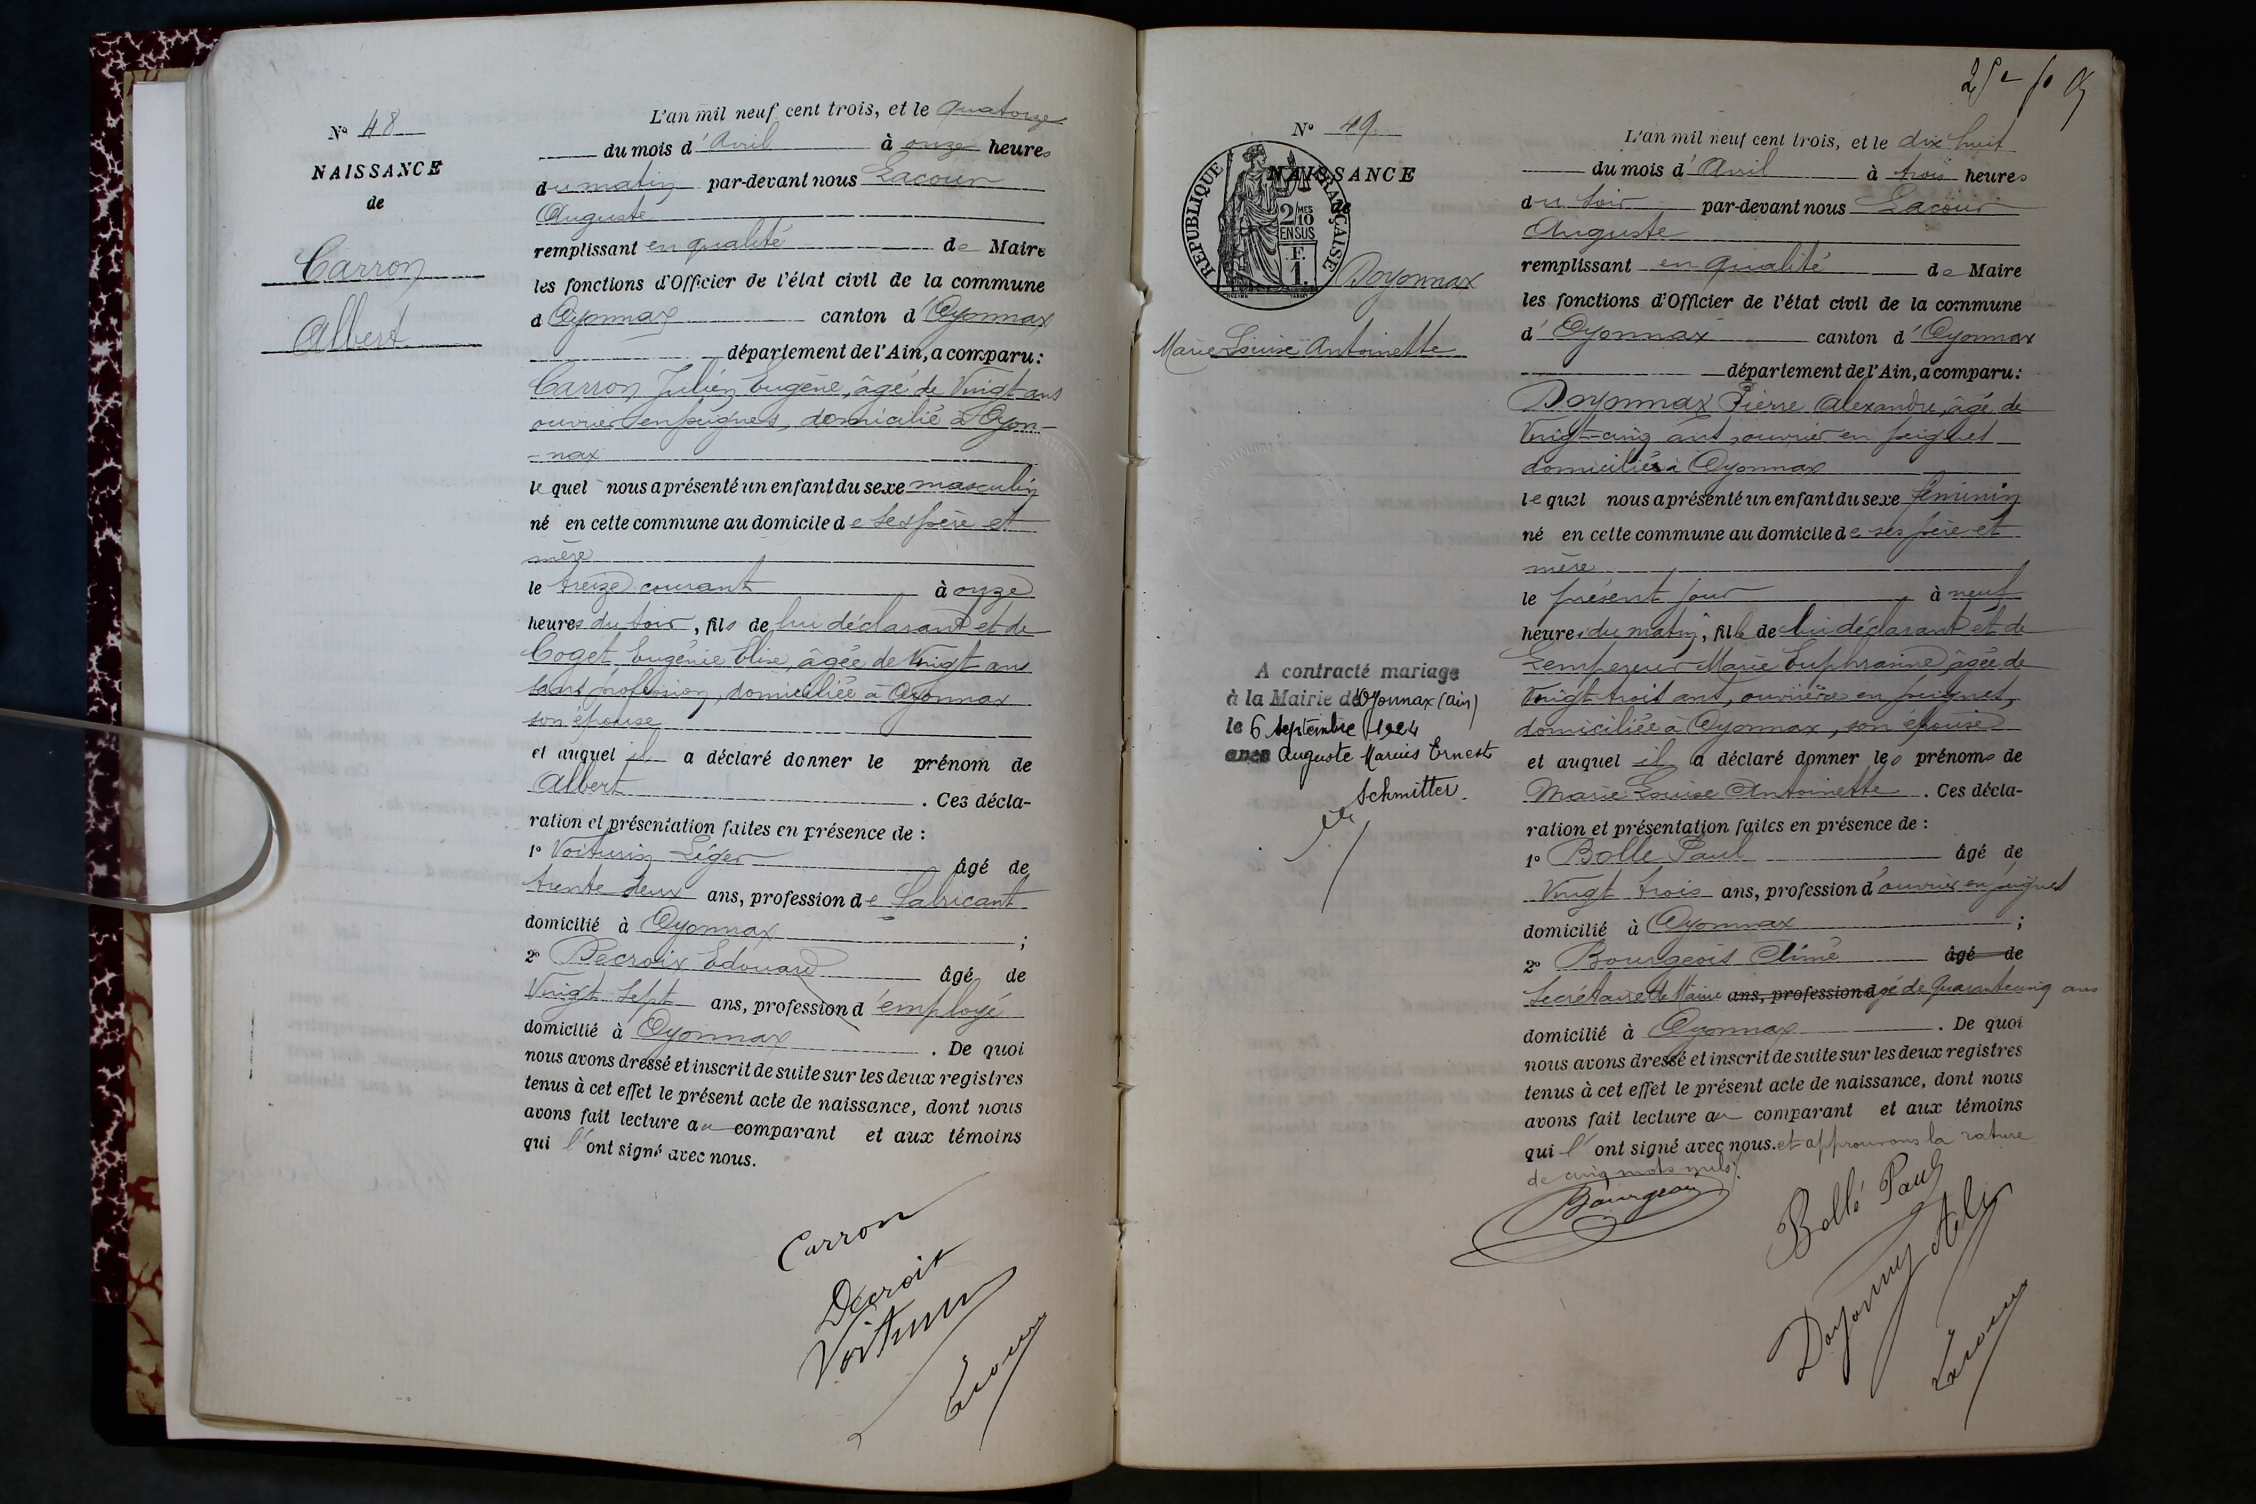 N° 48
NAISSANCE
de
Carron
Albert
L'an mil neuf cent trois, et le quatorze
du mois d'Avril à onze heures
du matin par-devant nous Lacour
Auguste
remplissant en qualité de Maire
les fonctions d'Officier de l'état civil de la commune
d Oyonnax canton d'Oyonnax
département de l'Ain, a comparu :
Carron Julien Eugène, âgé de Vingt ans
ouvrier en peignes, domicilié à Oyon-
-nax
lequel nous a présenté un enfant du sexe masculin
né en cette commune au domicile de ses père et
mère
le treize courant à onze
heures du soir, fils de lui déclarant et de
Coget Eugénie Elise, âgée de Vingt ans
sans profession, domiciliée à Oyonnax
son épouse
et auquel il a déclaré donner le prénom de
Albert. Ces décla-
ration et présentation faites en présence de :
1° Voiturin Léger âgé de
trente deux ans, profession de fabricant
domicilié à Oyonnax ;
2° Decroix Edouard âgé de
Vingt sept ans, profession d'employé
domicilié à Oyonnax. De quoi
nous avons dressé et inscrit de suite sur les deux registres
tenus à cet effet le présent acte de naissance, dont nous
avons fait lecture au comparant et aux témoins
qui l'ont signé avec nous.
Carron
Decroix
Voiturin
Lacour
N° 49
NAISSANCE
de
RÉPUBLIQUE FRANÇAISE
2/10 MES
EN SUS
1 F.
Doyonnax
Marie Louise Antoinette
A contracté mariage
à la Mairie de Oyonnax (Ain)
le 6 septembre 1924
avec Auguste Marius Ernest
Schmitter.
L'an mil neuf cent trois, et le dix huit
du mois d'Avril à trois heures
du soir par-devant nous Lacour
Auguste
remplissant en qualité de Maire
les fonctions d'Officier de l'état civil de la commune
d'Oyonnax canton d'Oyonnax
département de l'Ain, a comparu :
Doyonnax Pierre Alexandre, âgé de
Vingt-cinq ans, ouvrier en peignes
domicilié à Oyonnax
lequel nous a présenté un enfant du sexe féminin
né en cette commune au domicile de ses père et
mère
le présent jour à neuf
heures du matin, fille de lui déclarant et de
Lempereur Marie Euphrasine, âgée de
Vingt trois ans, ouvrière en peignes,
domiciliée à Oyonnax, son épouse
et auquel il a déclaré donner les prénoms de
Marie Louise Antoinette. Ces décla-
ration et présentation faites en présence de :
1° Bolle Paul âgé de
Vingt trois ans, profession d'ouvrier en peignes
domicilié à Oyonnax ;
2° Bourgeois Climé âgé de
Secrétaire de Mairie ans, profession d âgé de Quarante cinq ans
domicilié à Oyonnax. De quoi
nous avons dressé et inscrit de suite sur les deux registres
tenus à cet effet le présent acte de naissance, dont nous
avons fait lecture au comparant et aux témoins
qui l'ont signé avec nous. et approuvons la rature
de cinq mots nuls.
Bourgeois
Bollé Paul
Lacour